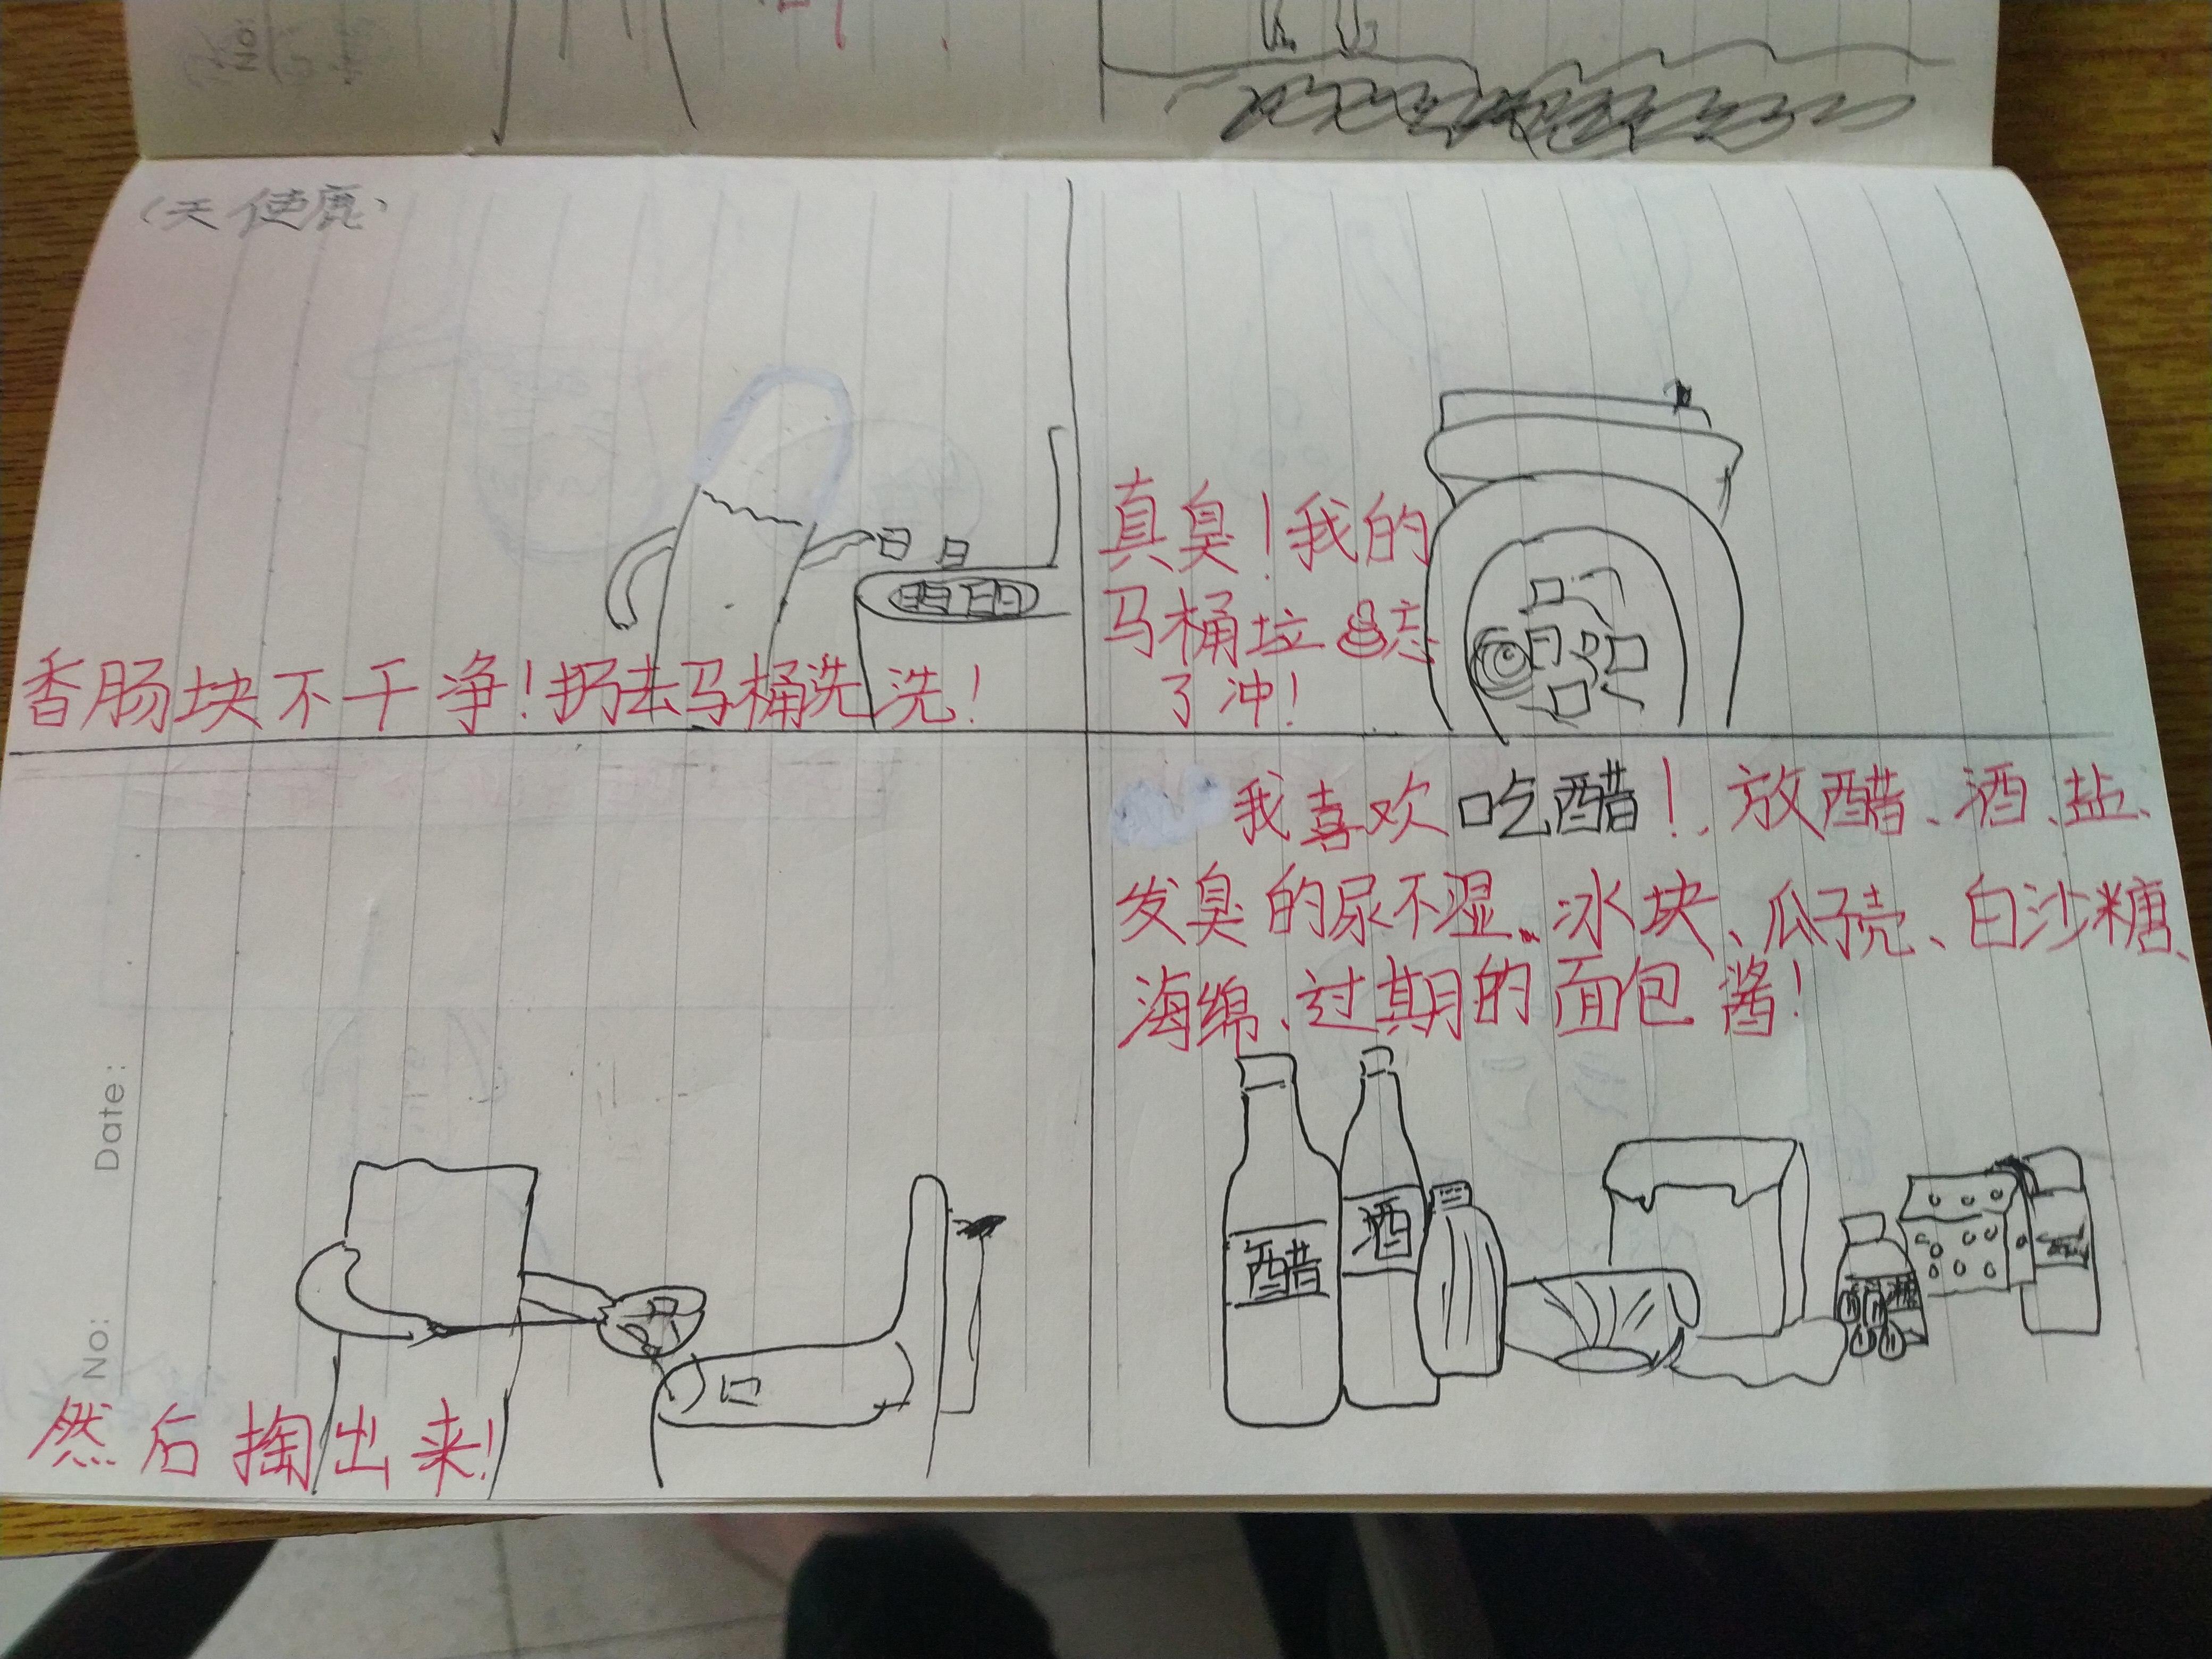 No:
（天使鹿）
香肠块不干净！扔去马桶洗洗！
真臭！我的
马桶垃忘
了冲！
然后掏出来！
我喜欢吃醋！放醋、酒、盐、
发臭的尿不湿、冰块、瓜子壳、白沙糖、
海绵、过期的面包酱！
醋
酒
糖
Date:
No: